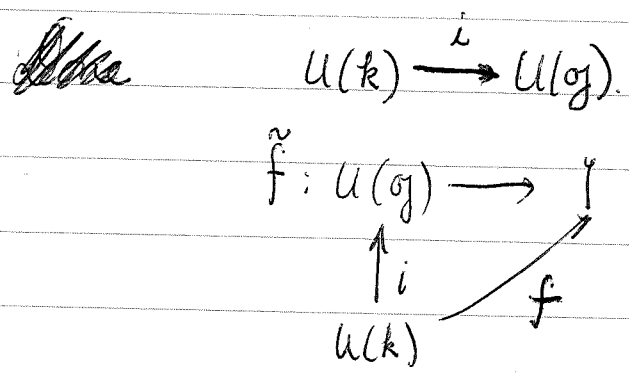 U(k) —i→ U(𝔤).
f̃ : U(𝔤) ⟶ Y
↑ i f
U(k)